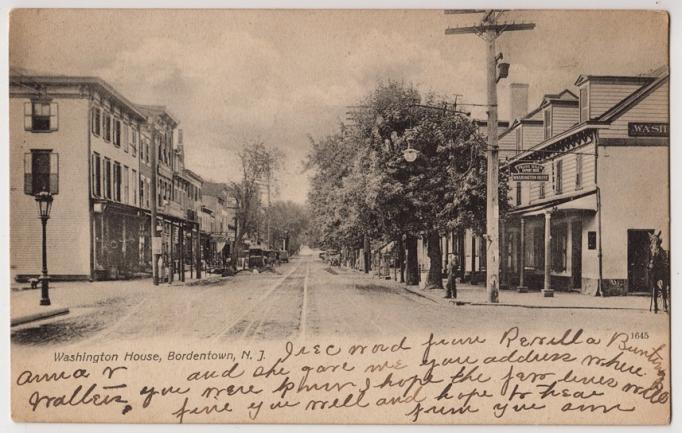 WASHINGTON HOUSE
WASH
1645
Washington House, Bordentown, N. J.
I rec word from Revilla Bunting
and she gave me your address where
you were so now I hope the few lines will
fine you well and hope to hear
from you ann
Anna V